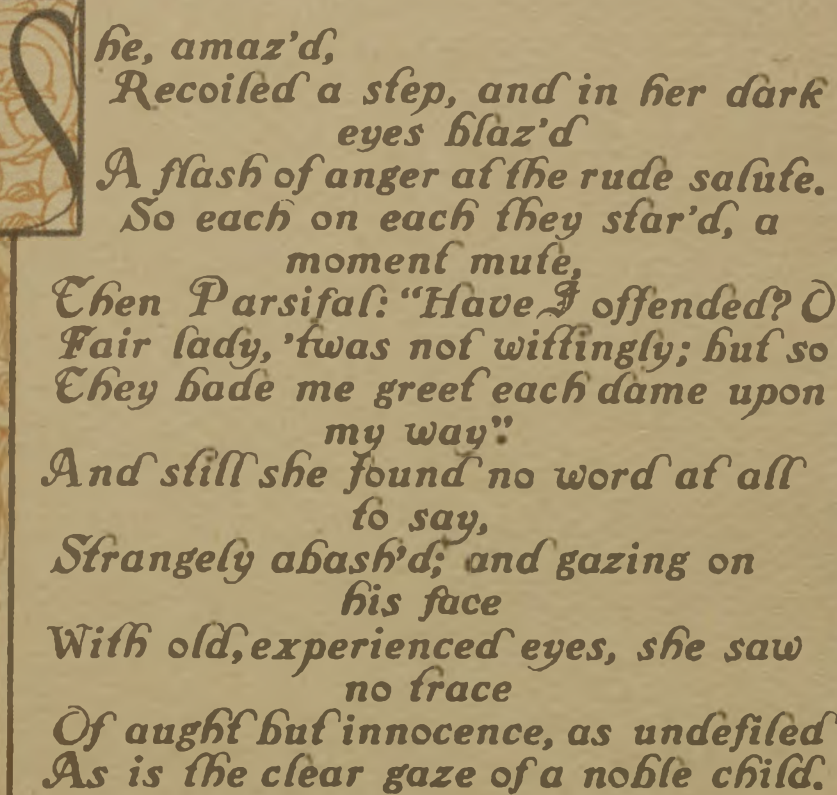 She, amaz'd,
Recoiled a step, and in her dark
eyes blaz'd
A flash of anger at the rude salute.
So each on each they star'd, a
moment mute,
Then Parsifal: "Have I offended? O
Fair lady, 'twas not wittingly; but so
They bade me greet each dame upon
my way".
And still she found no word at all
to say,
Strangely abash'd; and gazing on
his face
With old, experienced eyes, she saw
no trace
Of aught but innocence, as undefiled
As is the clear gaze of a noble child.